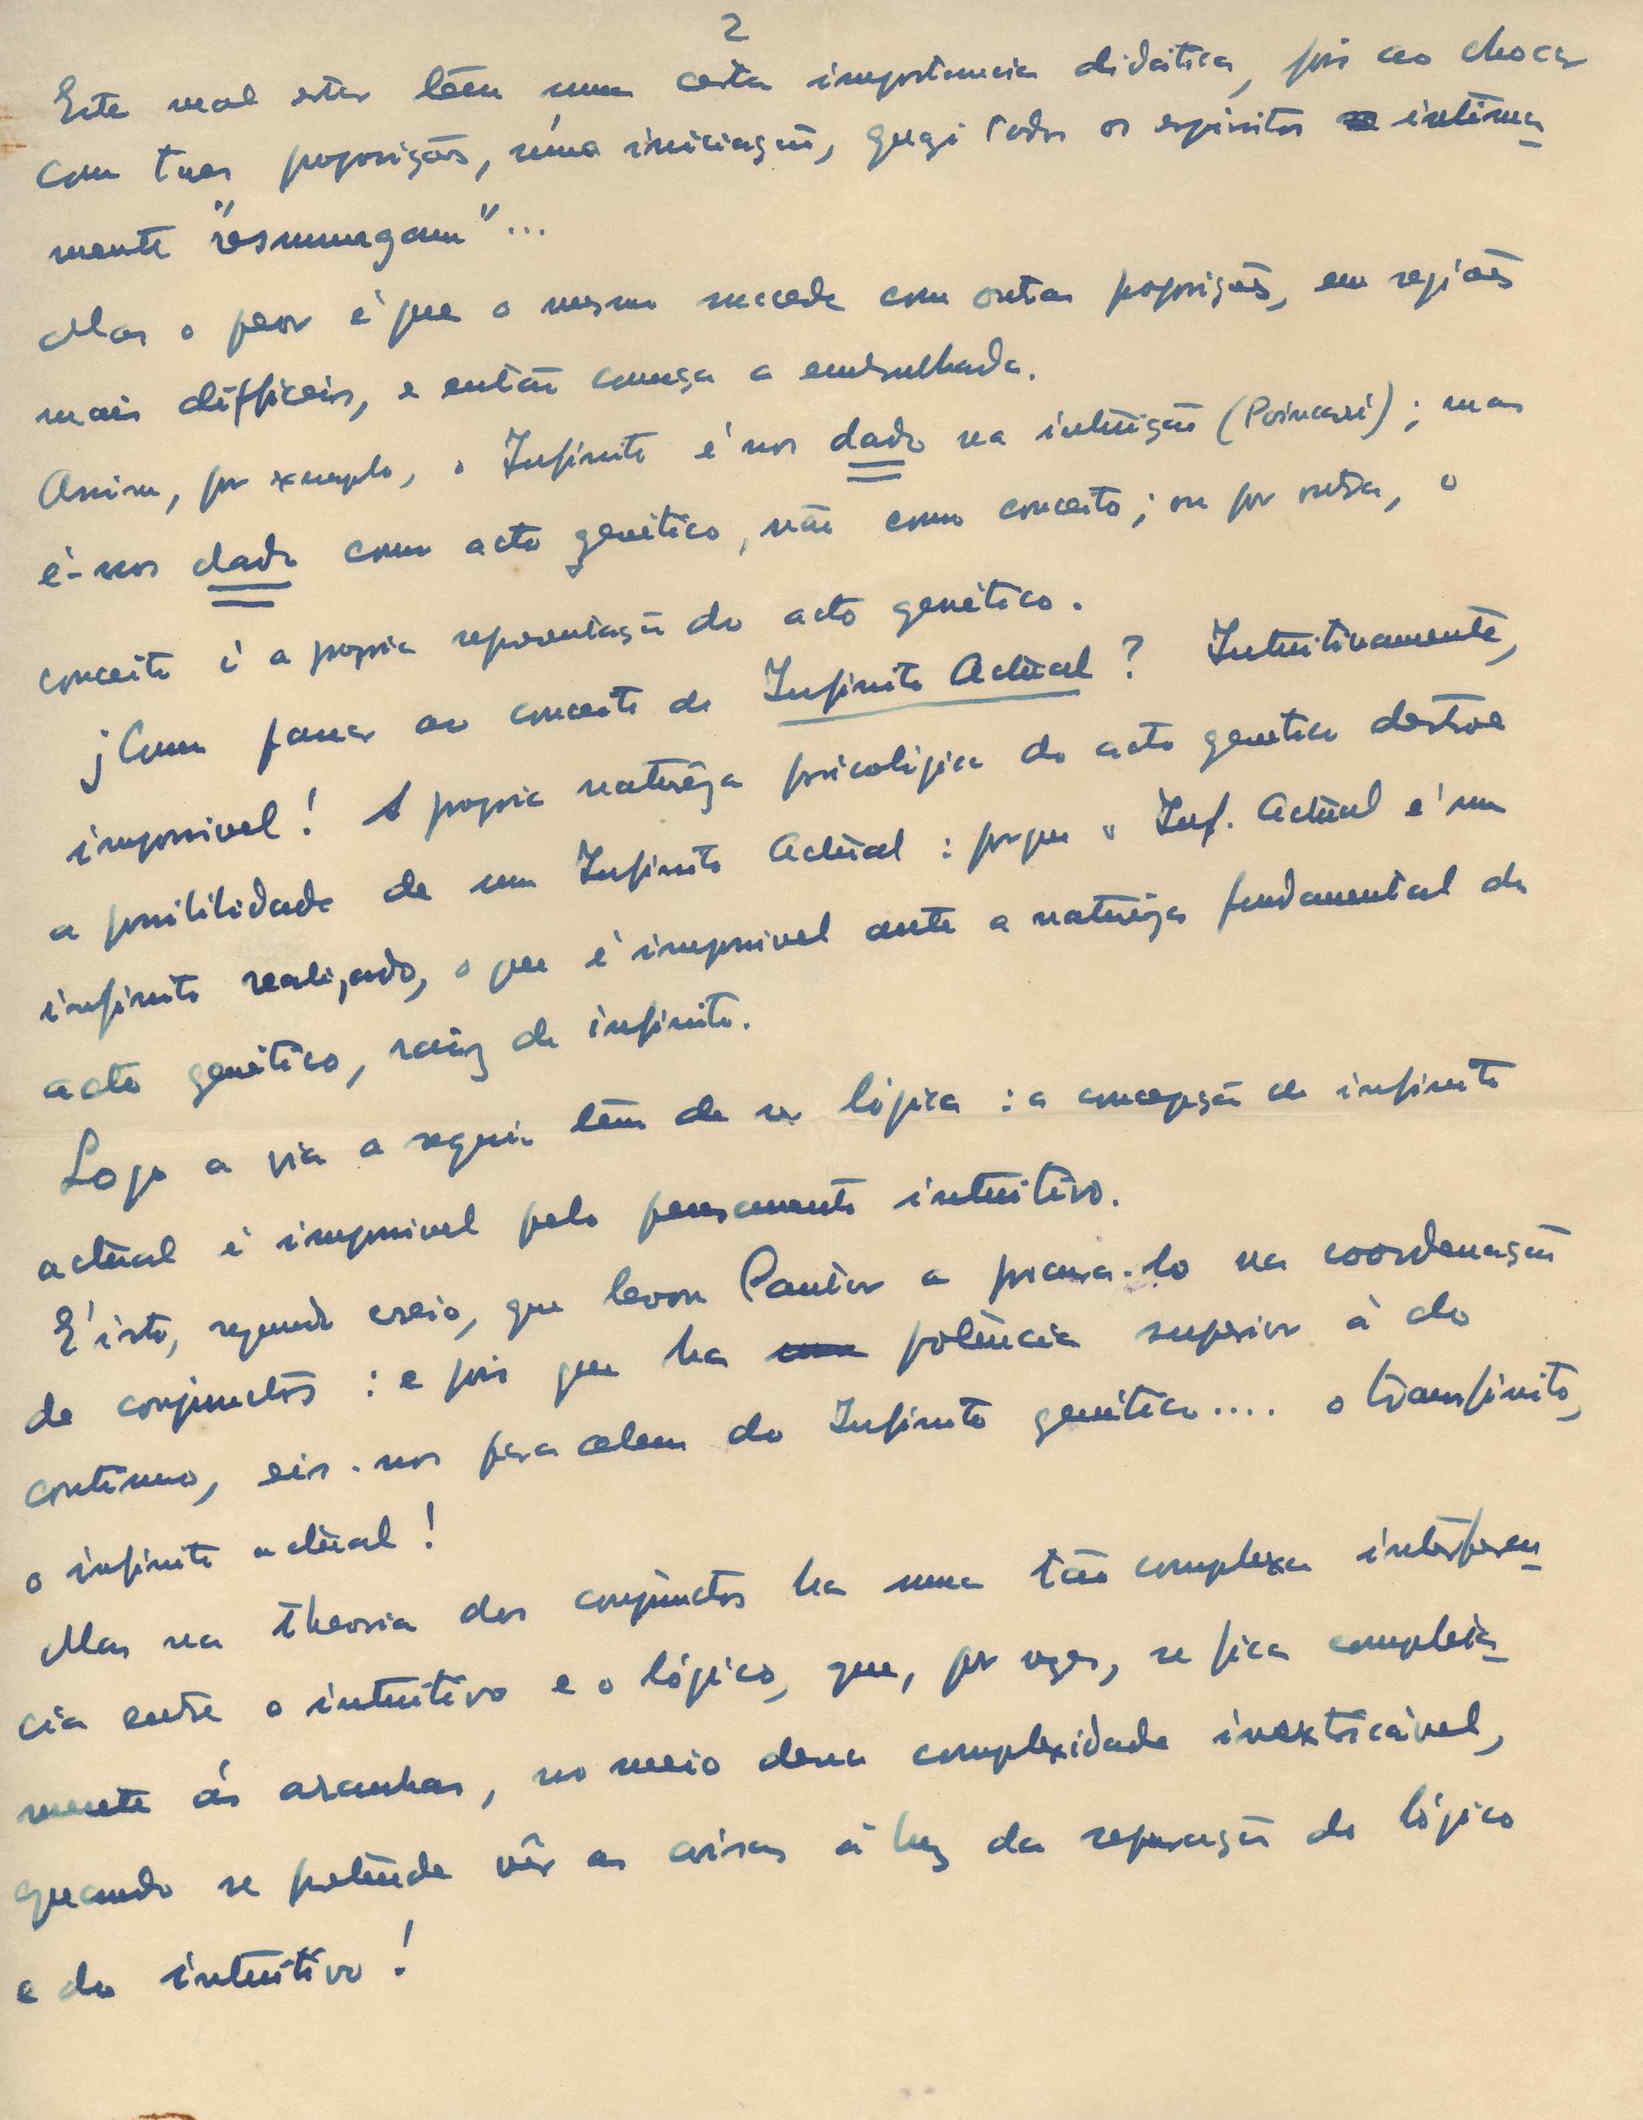 2
Este mal estar tem uma certa importancia didática, pois ao chocar
com taes proposições, n'uma iniciação, quazi todos os espiritos intima-
mente "resmungam"...
Mas o peor é que o mesmo sucede com outras proposições, em regiões
mais difficeis, e então começa a embrulhada.
Assim, por exemplo, o Infinito é nos dado na intuição (Poincaré); mas
é-nos dado como acto genético, não como conceito; ou por outra, o
conceito é a propria representação do acto genético.
¿Como passar ao conceito de Infinito Actual? Intuitivamente,
impossivel! A propria natureza psicologica do acto genetico destroe
a possibilidade de um Infinito Actual: porque o Inf. Actual é um
infinito realizado, o que é impossivel ante a natureza fundamental do
acto genético, raiz do infinito.
Logo a via a seguir tem de ser lógica: a concepção do infinito
actual é impossivel pelo pensamento intuitivo.
É isto, segundo creio, que levou Cantor a procura-lo na coordenação
de conjunctos: e pois que ha potência superior à do
continuo, eis-nos para alem do Infinito genético.... o transfinito,
o infinito actual!
Mas na theoria dos conjunctos ha uma tão complexa interferen-
cia entre o intuitivo e o lógico, que, por vezes, se fica completa-
mente ás aranhas, no meio dessa complexidade inextricável,
quando se pretende vêr as coisas á luz da separação do lógico
e do intuitivo!